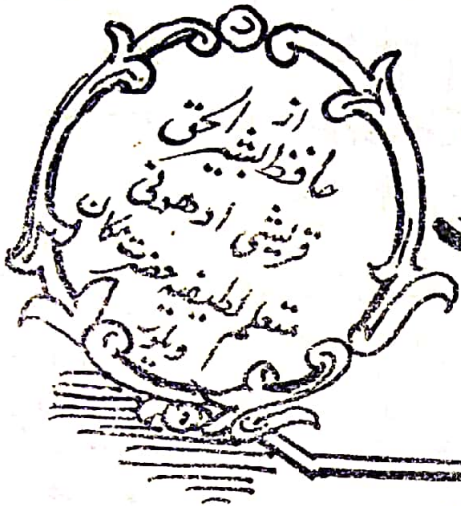 از
حافظ بشیر الحق
قریشی ادھونی
متعلم لطیفیہ حضرت مکان
ویلور